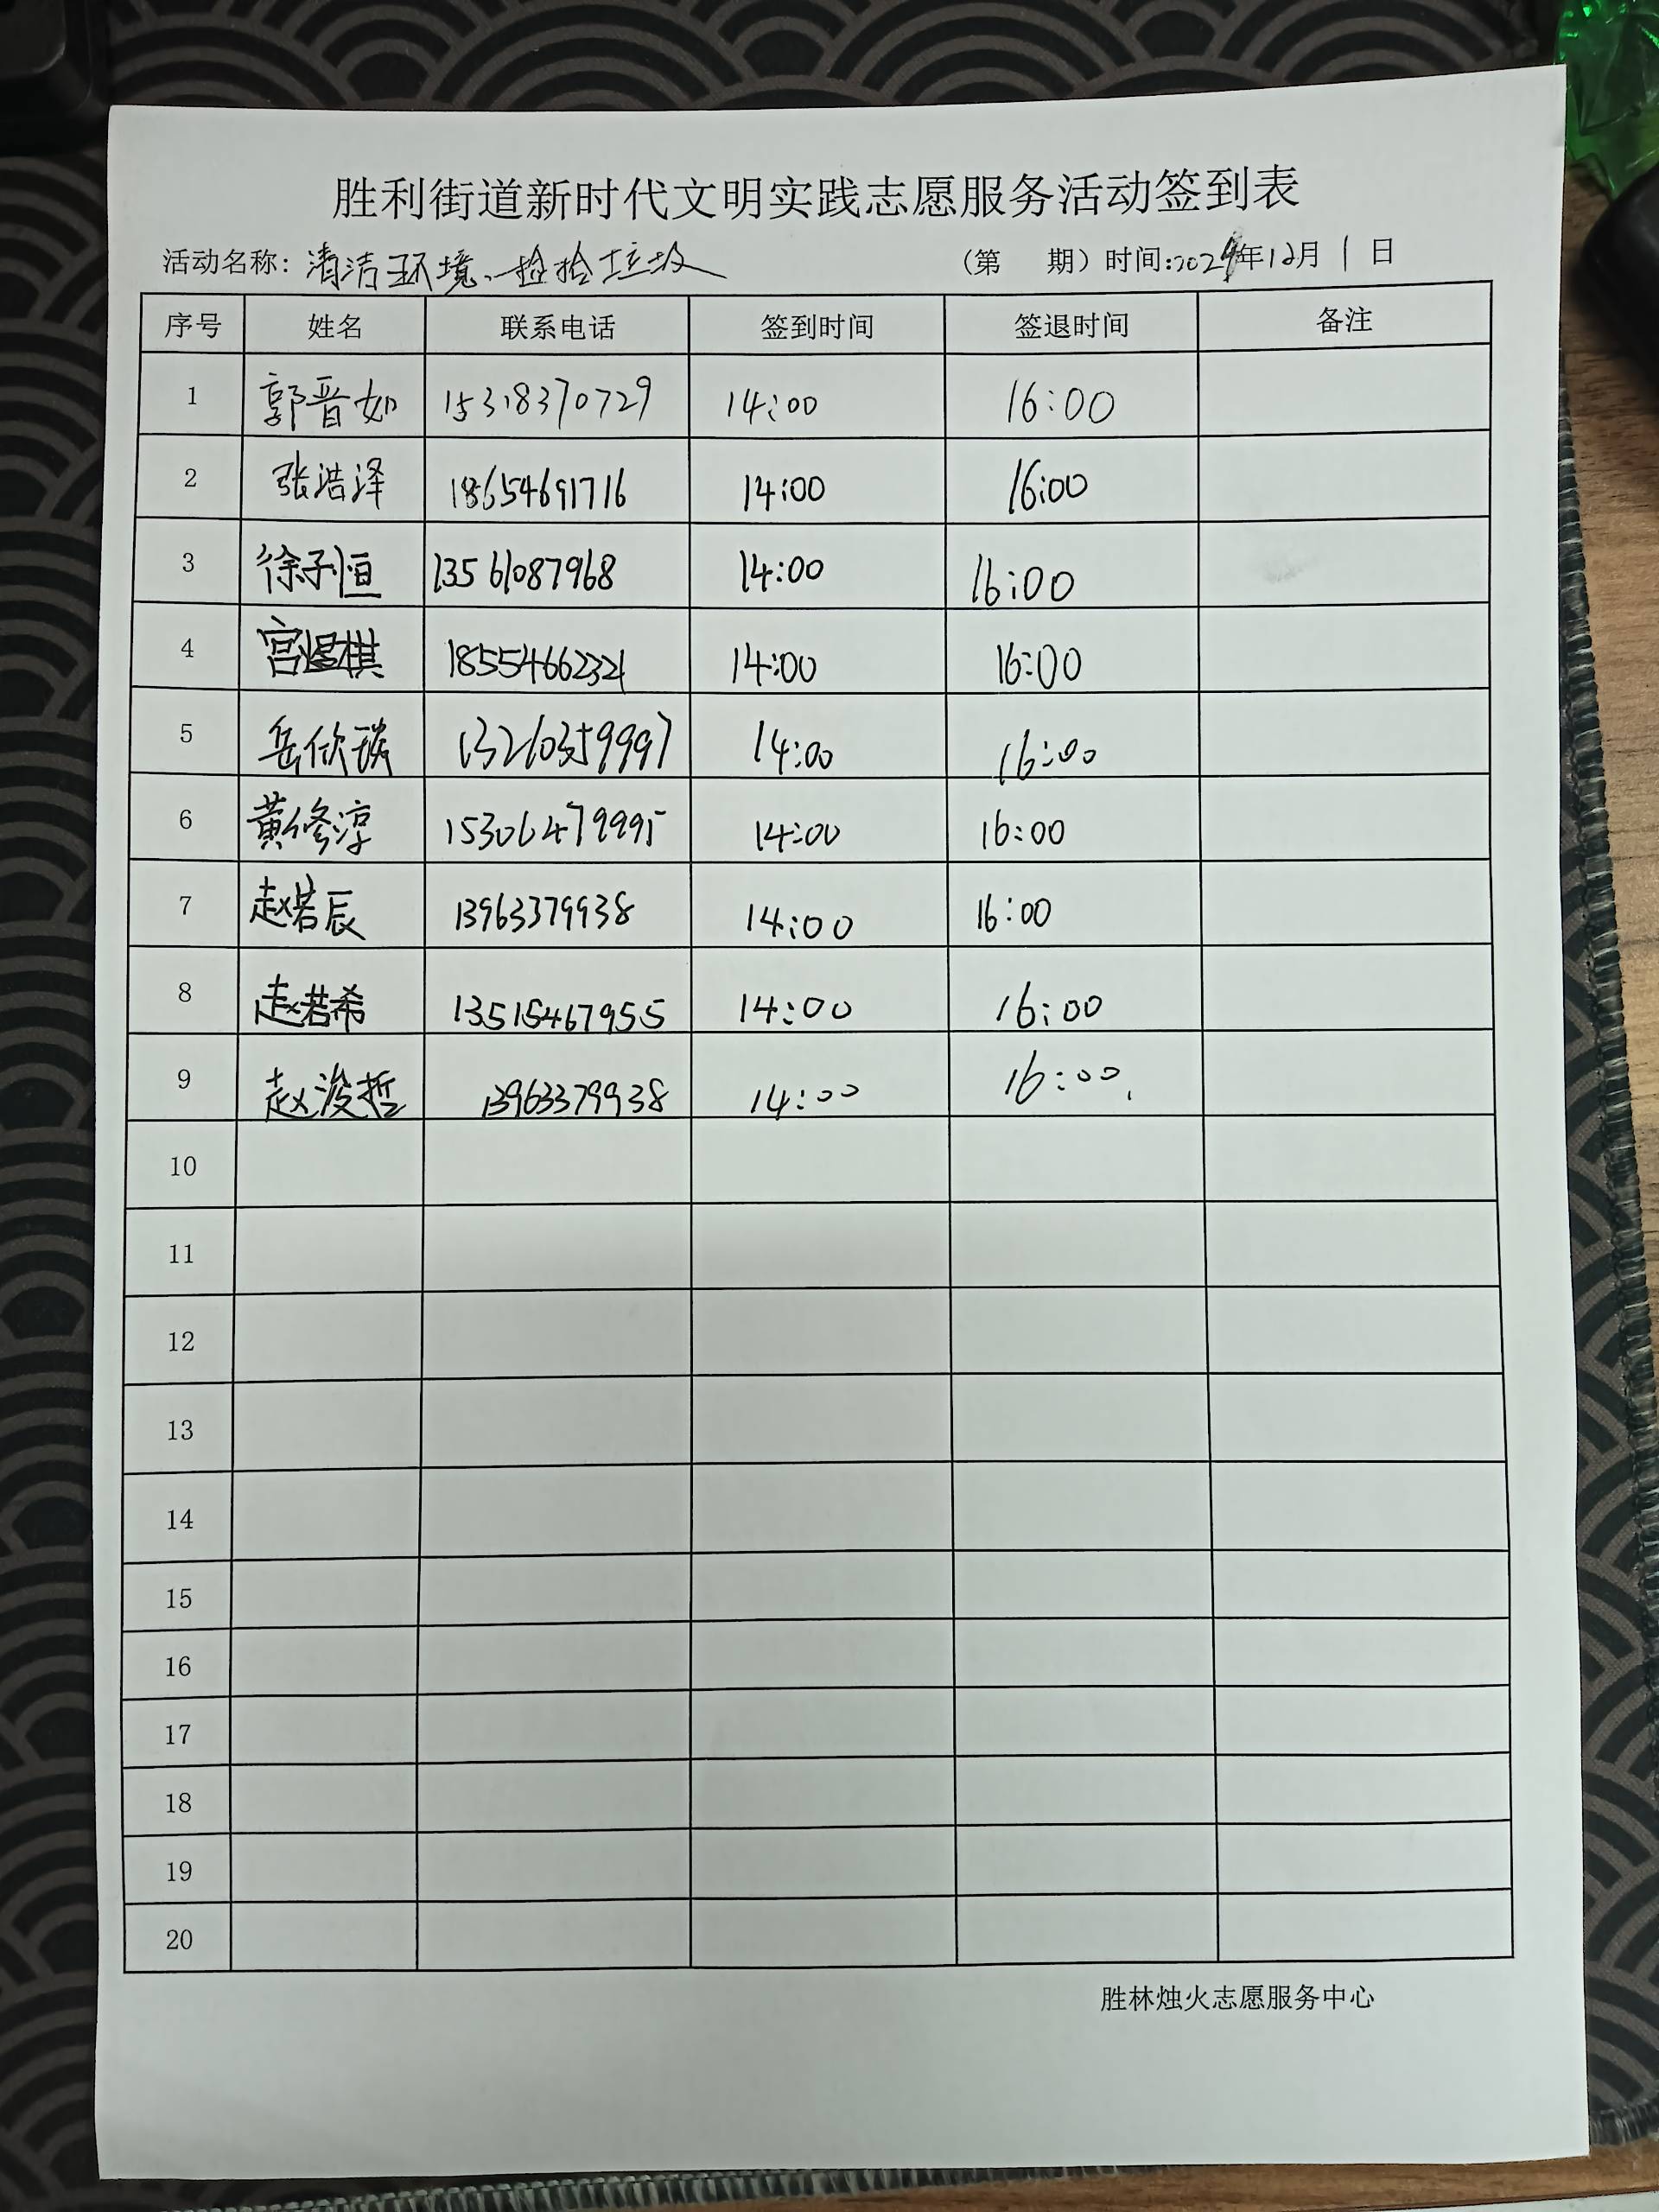 胜利街道新时代文明实践志愿服务活动签到表
活动名称：清洁环境、捡拾垃圾 （第 期）时间：2024年12月1日
序号 姓名 联系电话 签到时间 签退时间 备注
1 郭晋如 15318370729 14:00 16:00
2 张浩泽 18654691716 14:00 16:00
3 徐子恒 13561087968 14:00 16:00
4 宫煜棋 18554662321 14:00 16:00
5 岳欣 13210359997 14:00 16:00
6 黄修淳 15306479995 14:00 16:00
7 赵若辰 13963379938 14:00 16:00
8 赵若希 13515467955 14:00 16:00
9 赵浚哲 13963379938 14:00 16:00
10
11
12
13
14
15
16
17
18
19
20
胜林烛火志愿服务中心